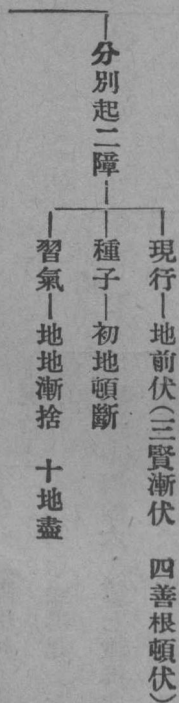 分別起二障
現行—地前伏(三賢漸伏　四善根頓伏)
種子—初地頓斷
習氣—地地漸捨　十地盡